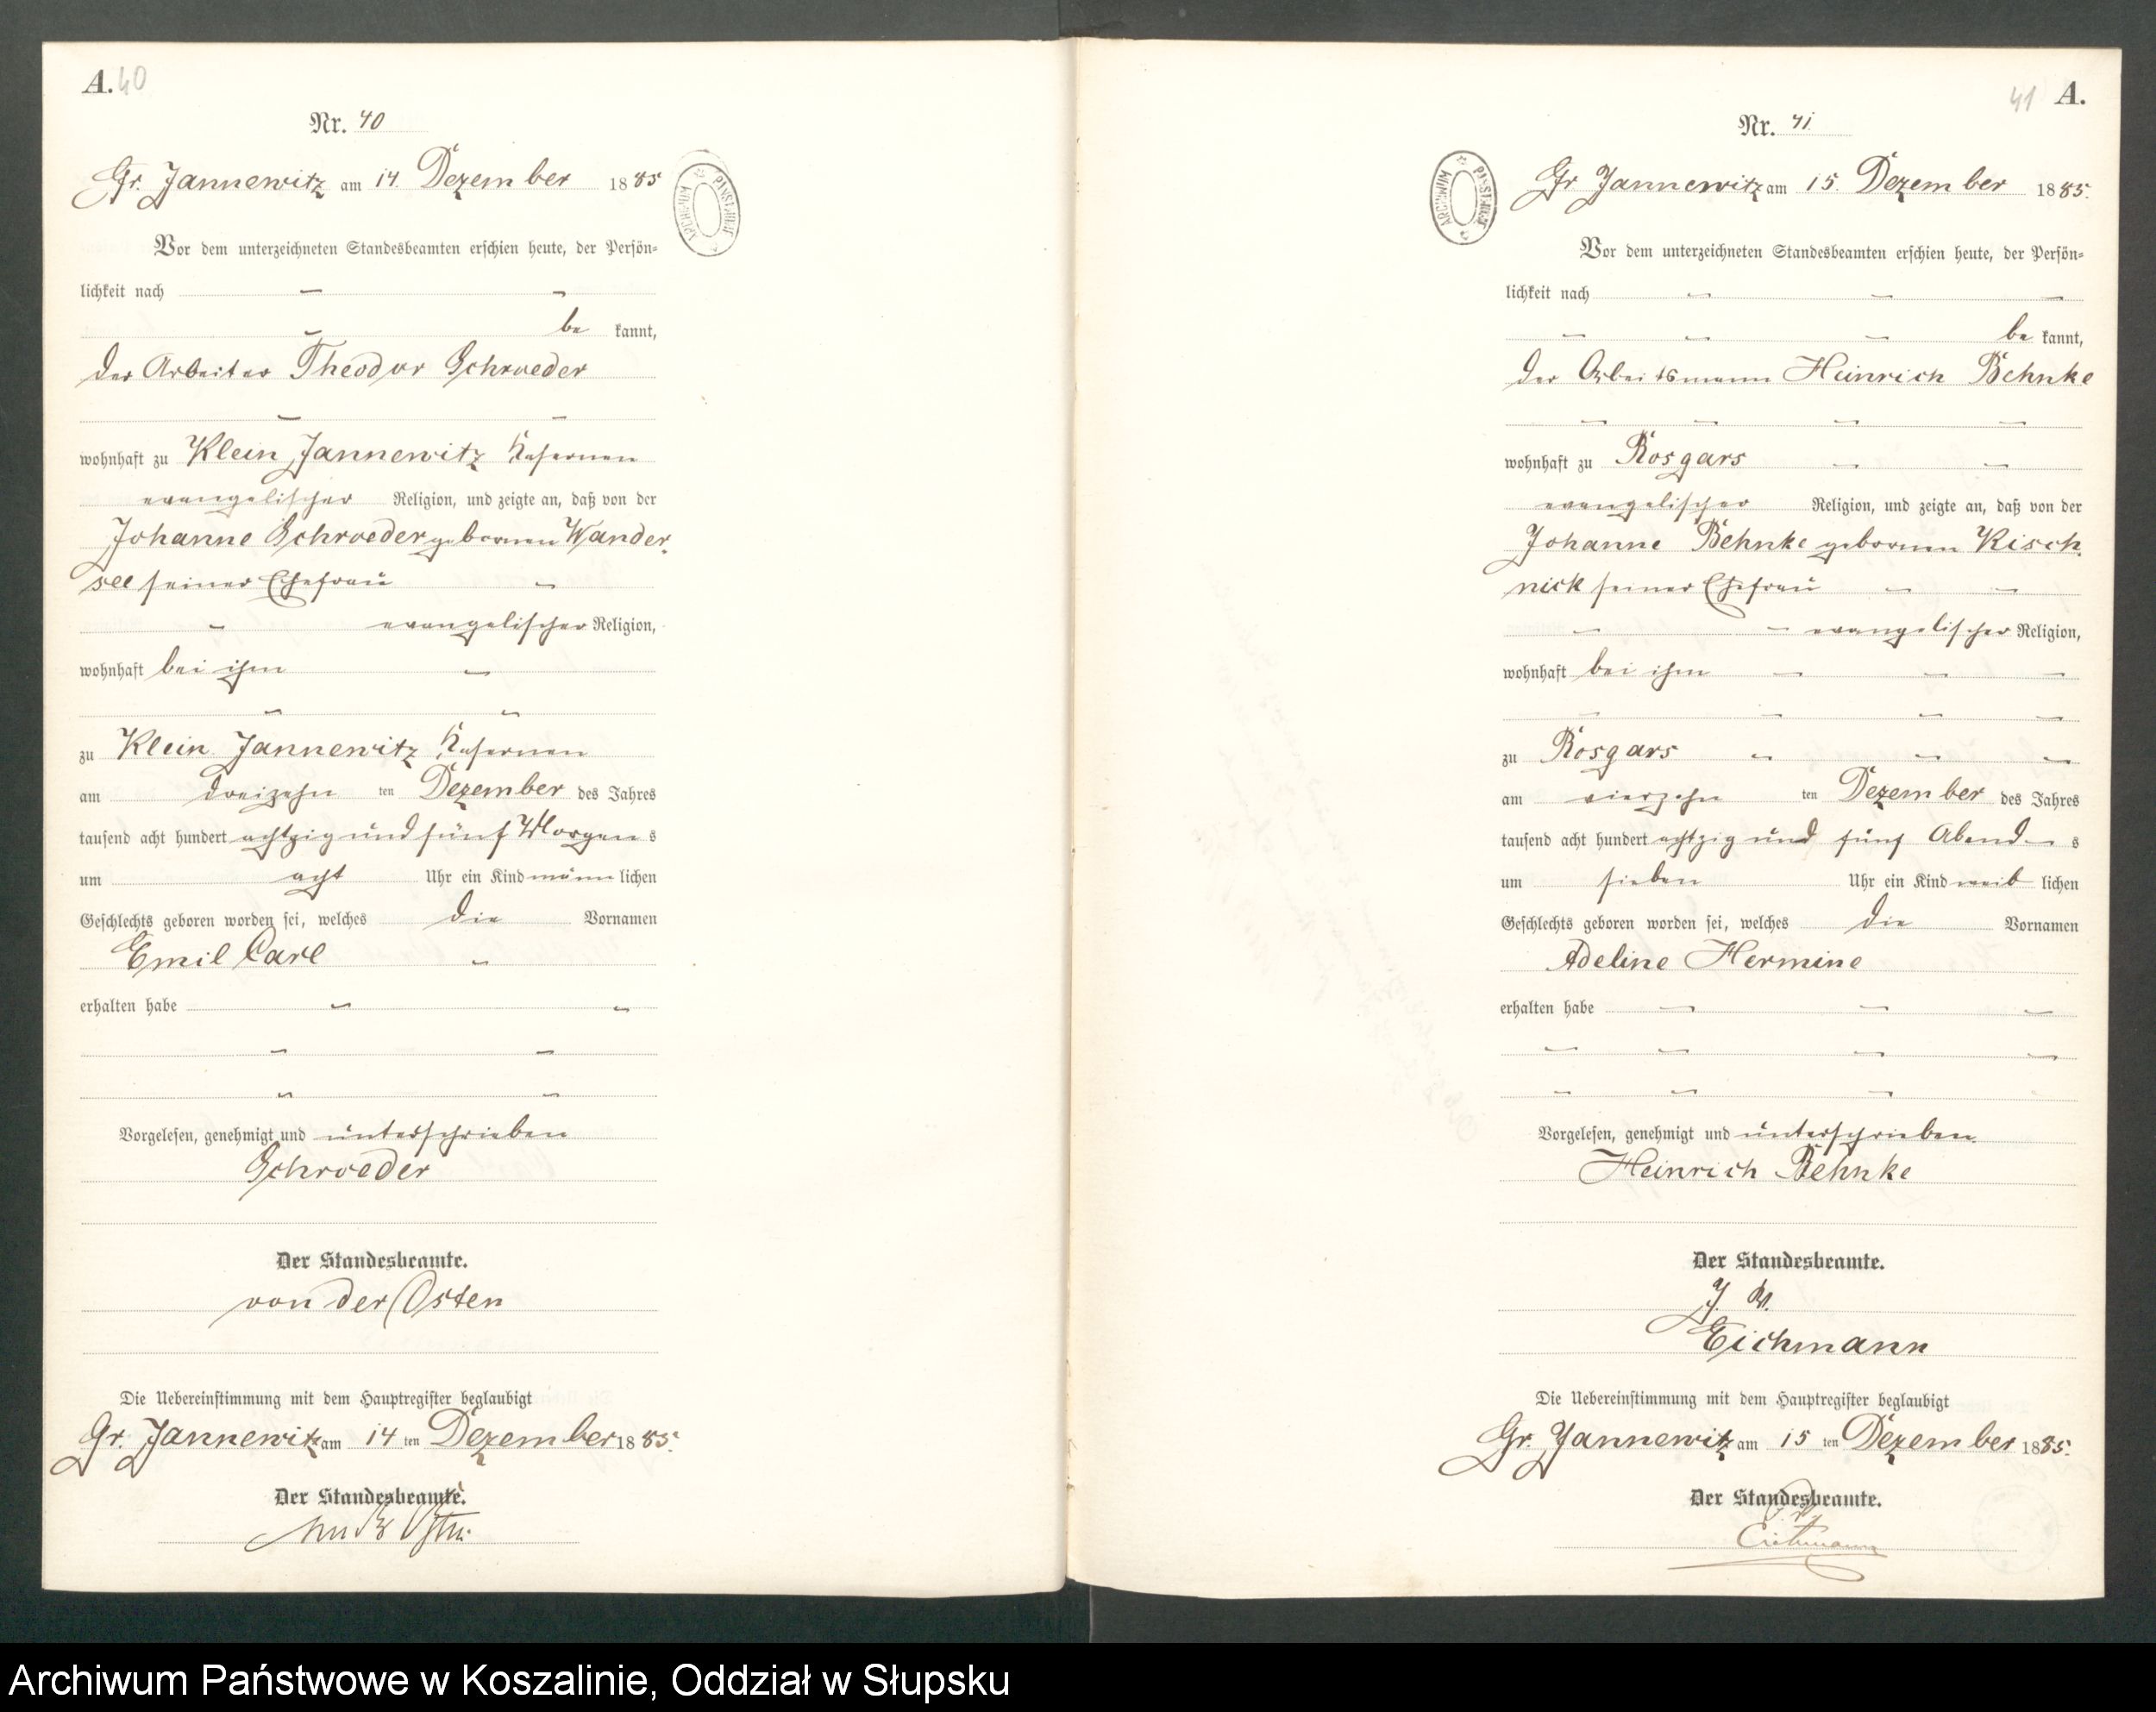 A. 40
Nr. 40
Gr. Jannewitz am 14. Dezember 1885
Vor dem unterzeichneten Standesbeamten erschien heute, der Persön=
lichkeit nach
be kannt,
der Arbeiter Theodor Schroeder
wohnhaft zu Klein Jannewitz Kasernen
evangelischer Religion, und zeigte an, daß von der
Johanne Schroeder gebornen Wander-
see seiner Ehefrau
evangelischer Religion,
wohnhaft bei ihm
zu Klein Jannewitz Kasernen
am dreizehn ten Dezember des Jahres
tausend acht hundert achtzig und fünf Morgen s
um acht Uhr ein Kind männ lichen
Geschlechts geboren worden sei, welches die Vornamen
Emil Carl
erhalten habe
Vorgelesen, genehmigt und unterschrieben
Schroeder
Der Standesbeamte.
von der Osten
Die Uebereinstimmung mit dem Hauptregister beglaubigt
Gr. Jannewitz am 14 ten Dezember 1885.
Der Standesbeamte.
ARCHIWUM PAŃSTWOWE
41 A.
Nr. 41
Gr Jannewitz am 15. Dezember 1885.
Vor dem unterzeichneten Standesbeamten erschien heute, der Persön=
lichkeit nach
be kannt,
der Arbeitsmann Heinrich Behnke
wohnhaft zu Rosgars
evangelischer Religion, und zeigte an, daß von der
Johanne Behnke gebornen Kisch-
nick seiner Ehefrau
evangelischer Religion,
wohnhaft bei ihm
zu Rosgars
am vierzehn ten Dezember des Jahres
tausend acht hundert achtzig und fünf Abend s
um sieben Uhr ein Kind weib lichen
Geschlechts geboren worden sei, welches die Vornamen
Adeline Hermine
erhalten habe
Vorgelesen, genehmigt und unterschrieben.
Heinrich Behnke
Der Standesbeamte.
J. V.
Eichmann
Die Uebereinstimmung mit dem Hauptregister beglaubigt
Gr. Jannewitz am 15 ten Dezember 1885.
Der Standesbeamte.
J. V.
Eichmann
ARCHIWUM PAŃSTWOWE
Archiwum Państwowe w Koszalinie, Oddział w Słupsku